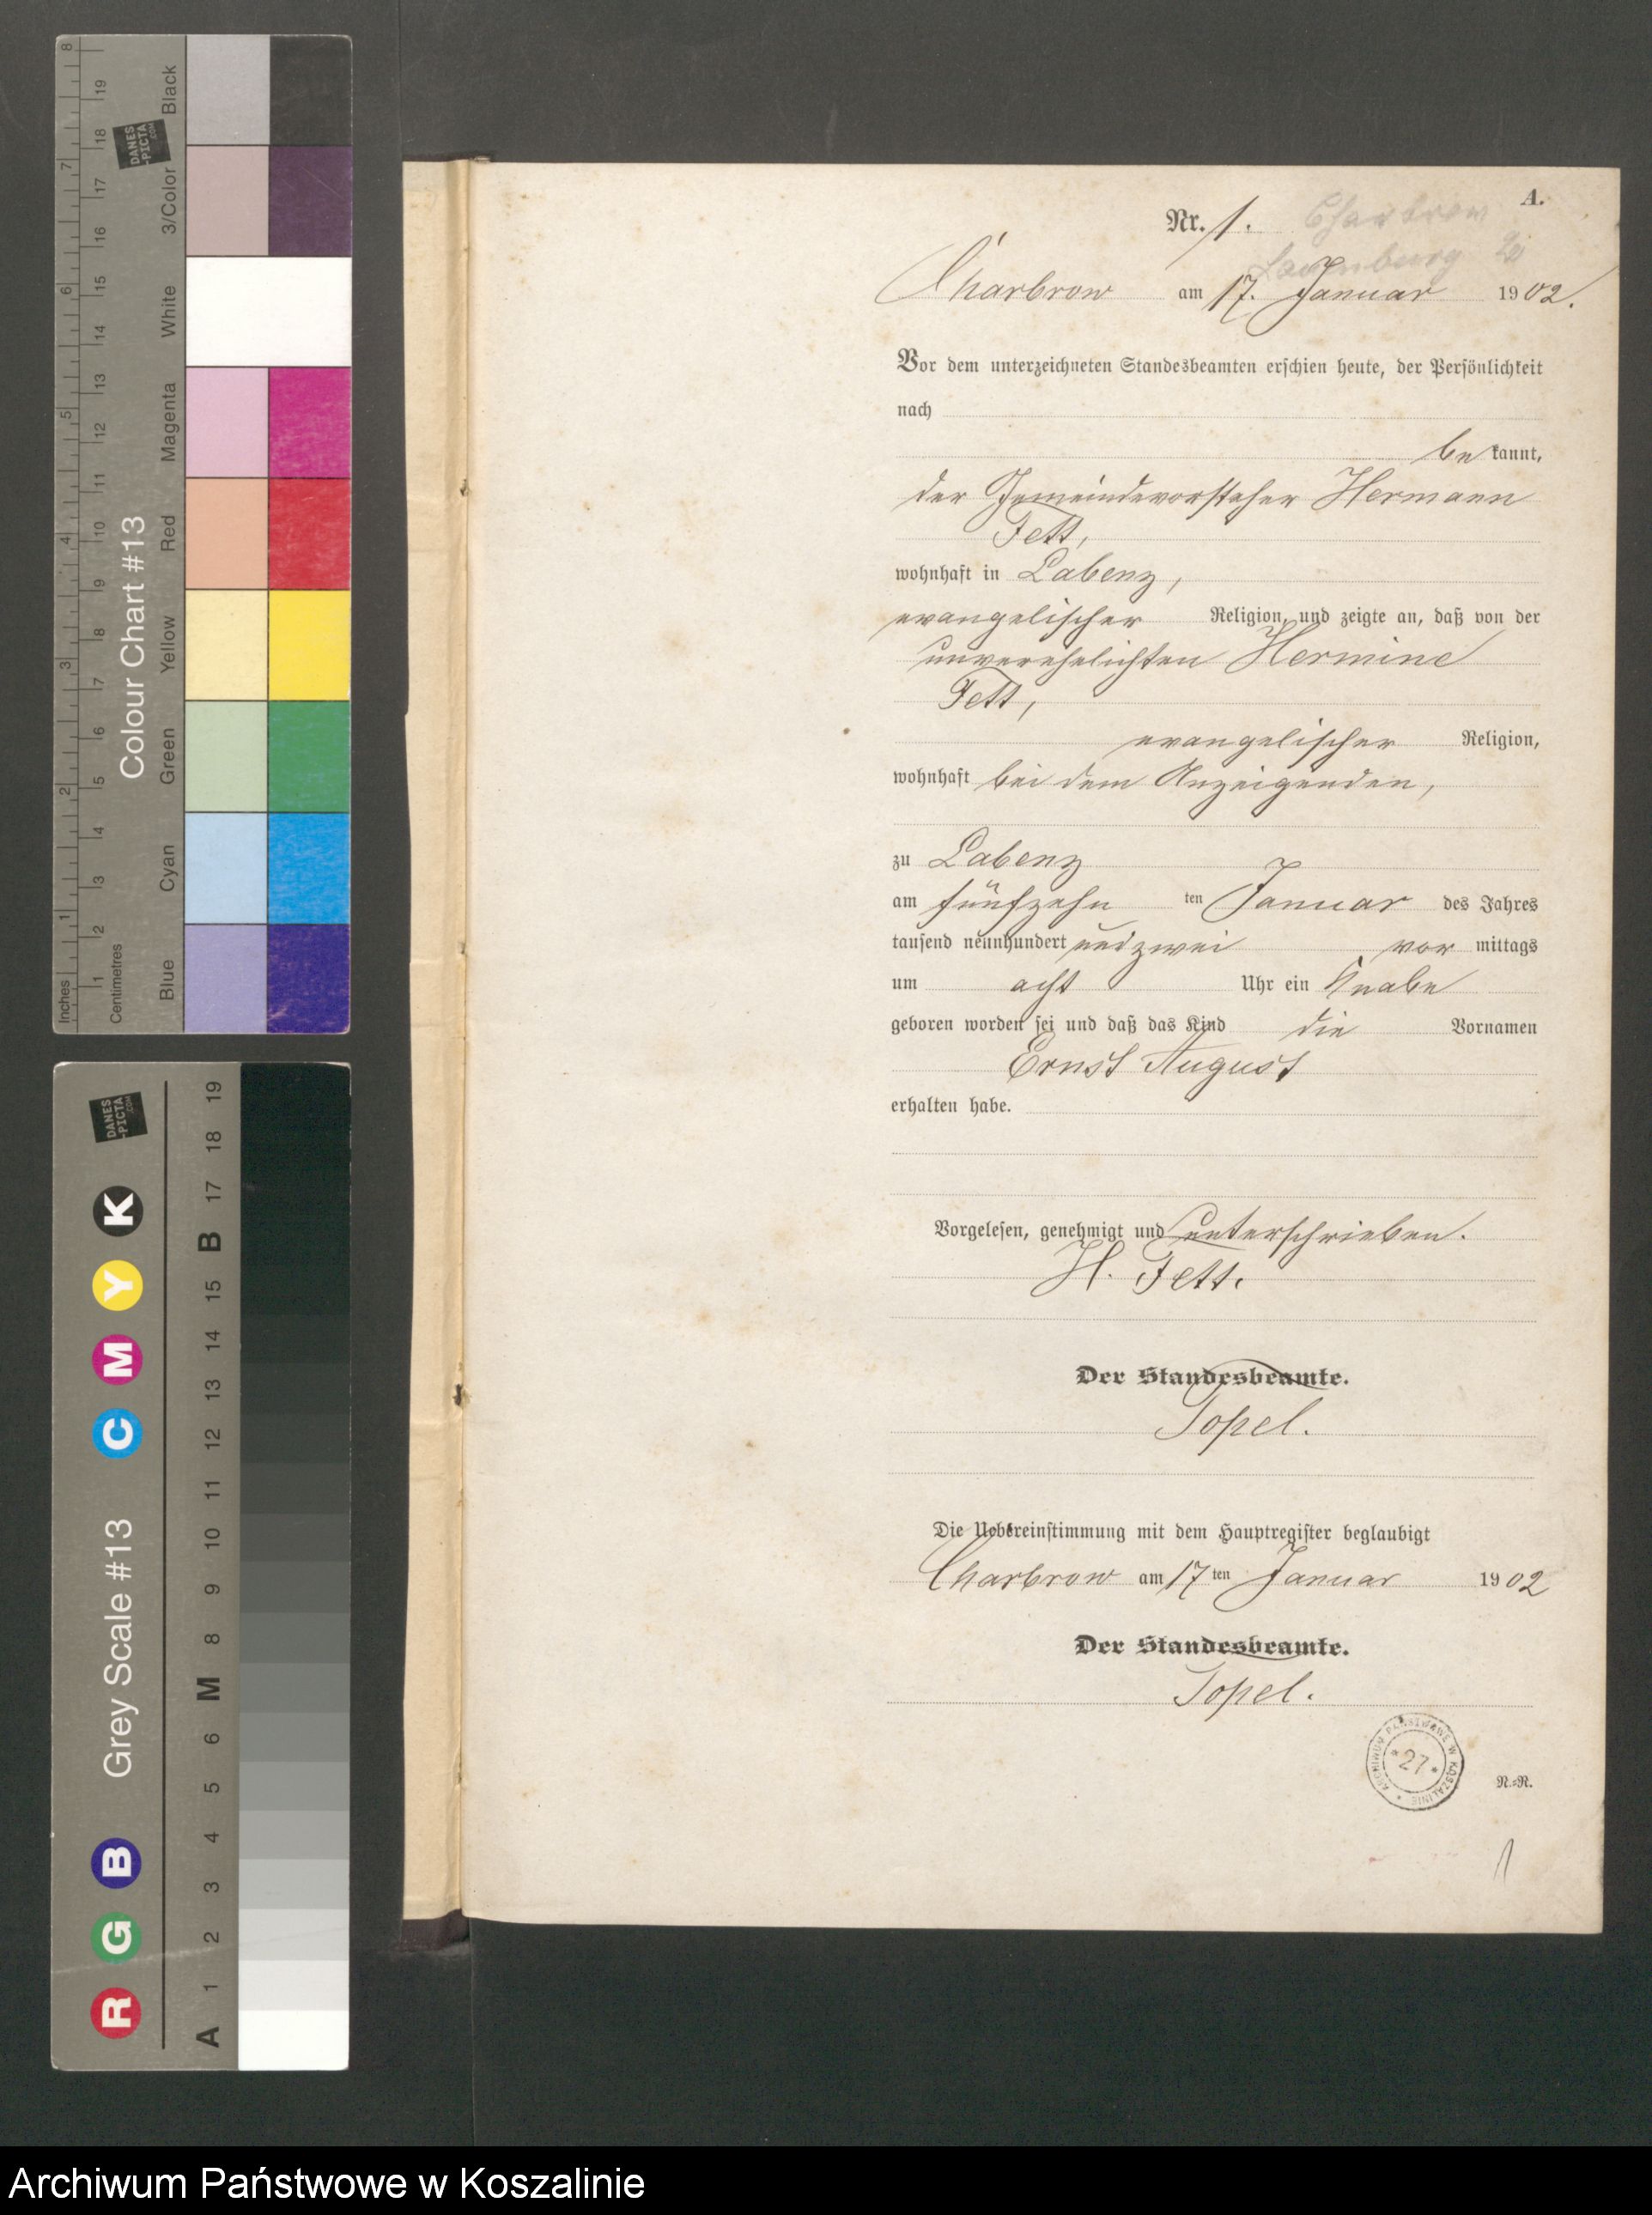 8
7
6
5
4
3
2
1
Inches
19
18
17
16
15
14
13
12
11
10
9
8
7
6
5
4
3
2
1
Centimetres
DANES
-PICTA
.COM
Colour Chart #13
Black
3/Color
White
Magenta
Red
Yellow
Green
Cyan
Blue
DANES
-PICTA
.COM
Grey Scale #13
K
Y
M
C
B
G
R
19
18
17
B
15
14
13
12
11
10
9
8
M
6
5
4
3
2
1
A
A.
Nr. 1. Charbrow
Lauenburg
Charbrow am 17. Januar 1902.
Vor dem unterzeichneten Standesbeamten erschien heute, der Persönlichkeit
nach
be kannt,
der Gemeindevorsteher Hermann
Fett,
wohnhaft in Labenz,
evangelischer Religion, und zeigte an, daß von der
unverehelichten Hermine
Fett,
evangelischer Religion,
wohnhaft bei dem Anzeigenden,
zu Labenz
am fünfzehn ten Januar des Jahres
tausend neunhundert und zwei vor mittags
um acht Uhr ein Knabe
geboren worden sei und daß das Kind die Vornamen
Ernst August
erhalten habe.
Vorgelesen, genehmigt und unterschrieben.
H. Fett.
Der Standesbeamte.
Topel.
Die Uebereinstimmung mit dem Hauptregister beglaubigt
Charbrow am 17 ten Januar 1902
Der Standesbeamte.
Topel.
ARCHIWUM PAŃSTWOWE W KOSZALINIE
* 27 *
N.=N.
1
Archiwum Państwowe w Koszalinie